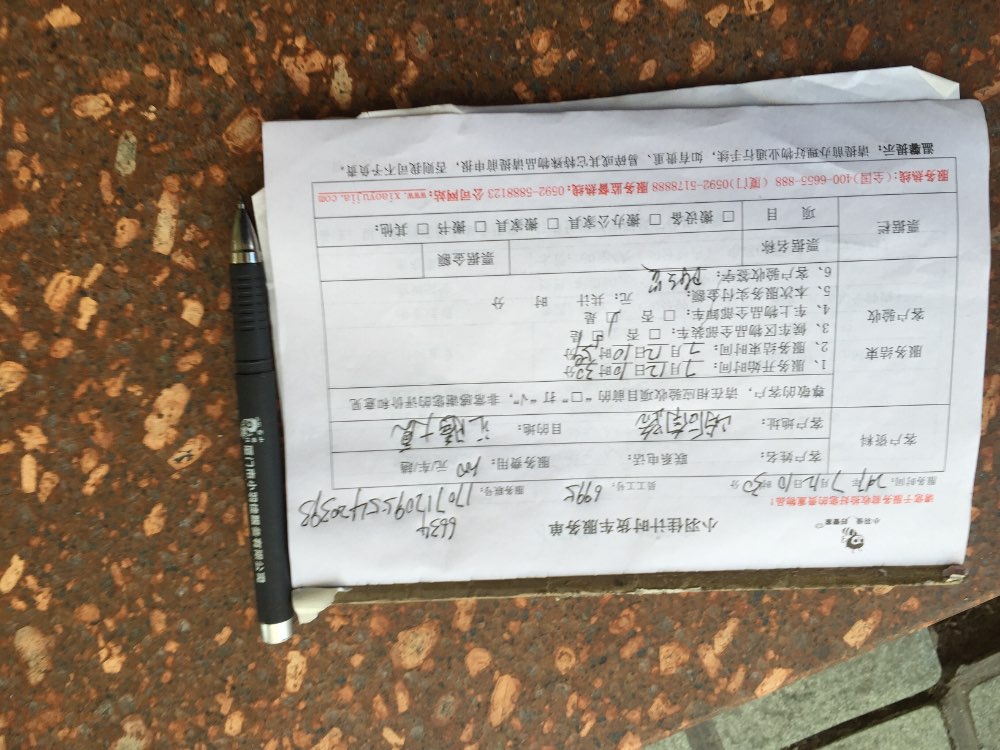 小羽佳，好管家
小羽佳计时货车服务单
6634
请您于服务前收拾好您的贵重物品：
服务时间：2017年7月12日10时30分
员工号：6995
服务账号：
客户资料
客户姓名：
联系电话：
服务费用：100元/车/趟
客户地址：
目的地：汇腾大厦
服务结束
客户验收
尊敬的客户，请在相应验收项目前的“□”打“√”，非常感谢您的评价和意见
1、服务开始时间：7月12日10时30分
2、服务结束时间：7月12日10时50分
3、候车区物品全部装车：□ 否 ☑ 是
4、车上物品全部卸车：□ 否 ☑ 是
5、本次服务实付金额： 元；共计 时 分
6、客户验收签字：
票据栏
票据名称
票据金额
项 目
□ 搬设备 □ 搬办公家具 □ 搬家具 □ 搬书 □ 其他：
服务热线：(全国)400-6655-888 (厦门)0592-5178888 服务监督热线：0592-5988123 公司网站：www.xiaoyujia.com
温馨提示：请提前办理好物业通行手续，如有贵重、易碎或其它特殊物品请提前申报，否则我司不予负责。
厦门市小羽佳家政股份有限公司